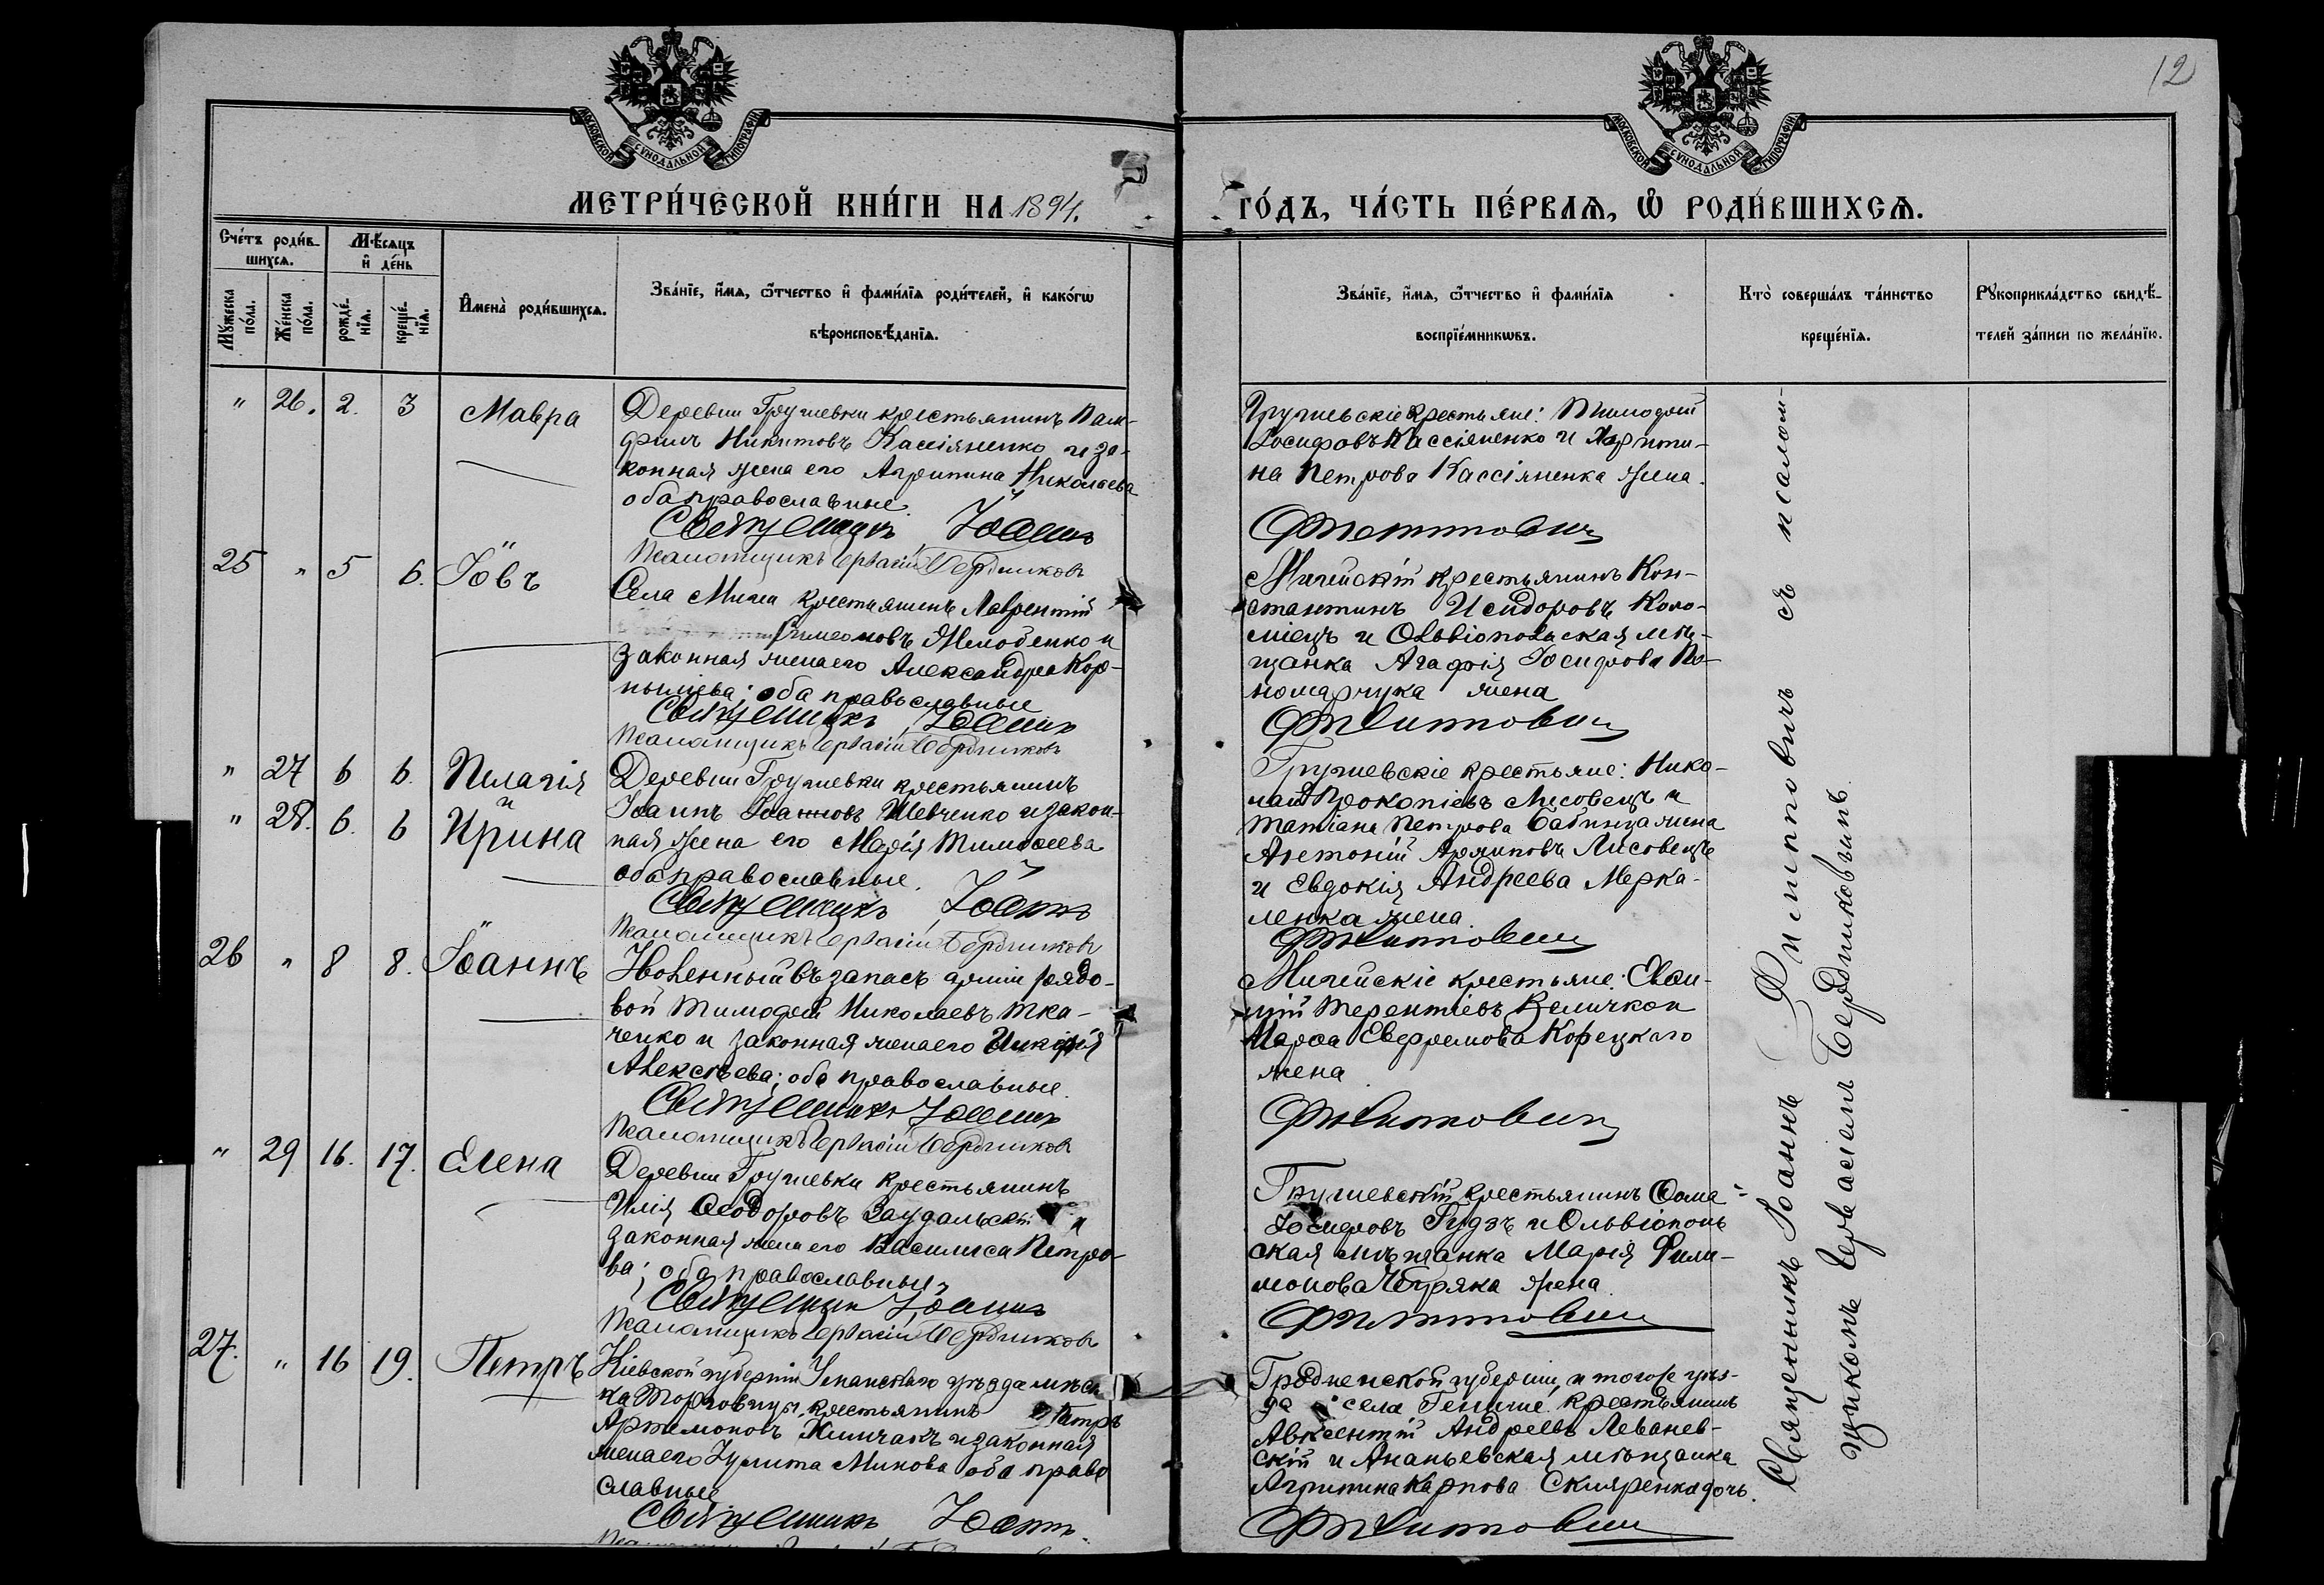 12
МОСКОВСКОЙ СѴНОДАЛЬНОЙ ТИПОГРАФІИ
МОСКОВСКОЙ СѴНОДАЛЬНОЙ ТИПОГРАФІИ
МЕТРИ́ЧЕСКОЙ КНИ́ГИ НА 1894.
ГО́ДЪ, ЧА́СТЬ ПЕ́РВАѦ, Ѡ РОДИ́ВШИХСѦ.
Сче́тъ роди́в-
шихсѧ.
Мѣ́сѧцъ
и҆ де́нь
Мꙋ́жеска
по́ла.
Же́нска
по́ла.
рожде́-
нїѧ.
креще́-
нїѧ.
И҆мена̀ роди́вшихсѧ.
Зва́нїе, и҆́мѧ, ѻ҆́тчество и҆ фами́лїѧ роди́телей, и҆ како́гѡ
вѣроисповѣ́данїѧ.
Зва́нїе, и҆́мѧ, ѻ҆́тчество и҆ фами́лїѧ
воспрїе́мникѡвъ.
Кто̀ соверша́лъ та́инство
креще́нїѧ.
Рꙋкоприкла́дство свидѣ́-
телей за́писи по жела́нїю.
" 26. 2. 3 Мавра
Деревни Грушевки крестьянинъ Пам-
филъ Никитовъ Кассіяненко и за-
конная жена его Агрипина Николаева
оба православные.
Священникъ Іоаннъ
Псаломщикъ Герvасій Бердниковъ
Грушевскіе крестьяне: Тимофей
Іосифовъ Кассіяненко и Харити-
на Петрова Кассіяненка жена.
Филиповичъ
25 " 5 6. Іовъ
Села Мигеи крестьянинъ Лаврентій
Симеоновъ Жмобенко и
законная жена его Александра Кор-
ниліева; оба православные
Священникъ Іоаннъ
Псаломщикъ Герvасій Бердниковъ
Мигейскій крестьянинъ Кон-
стантинъ Исидоровъ Коло-
міецъ и Ольвіопольская мѣ-
щанка Агафія Іосифова По-
номарчука жена
Филиповичъ
" 27 6 6. Пелагія
и
" 28. 6. 6 Ирина
Деревни Грушевки крестьянинъ
Іоаннъ Іоанновъ Шевченко и закон-
ная жена его Марія Тимофеева
оба православные.
Священникъ Іоаннъ
Псаломщикъ Герvасій Бердниковъ
Грушевскіе крестьяне: Нико-
лай Прокопіевъ Лисовецъ и
Татіана Петрова Бабинца жена
Антоній Архиповъ Лисовецъ
и Евдокія Андреева Мерка-
ленка жена.
Филиповичъ
26 " 8 8. Іоаннъ
Уволенный въ запасъ арміи рядо-
вой Тимофей Николаевъ Тка-
ченко и законная жена его
Алексѣева; оба православные.
Священникъ Іоаннъ
Псаломщикъ Герvасій Бердниковъ
Мигейскіе крестьяне:
Терентіевъ Величко и
Марѳа Евфремова Корецкаго
жена
Филиповичъ
" 29 16. 17. Елена
Деревни Грушевки крестьянинъ
Илія Ѳеодоровъ Заудальскій и
законная жена его Василиса Петро-
ва; оба православные
Священникъ Іоаннъ
Псаломщикъ Герvасій Бердниковъ
Грушевскій крестьянинъ Ѳома
Іосифовъ Гудзь и Ольвіополь
ская мѣщанка Марія Фили-
монова жена.
Филиповичъ
27. " 16 19. Петръ
Кіевской губерніи Уманскаго уѣзда мѣстеч
ка Торговицы крестьянинъ Петръ
Артемоновъ Кымчакъ и законная
жена его Іулита Минова оба право
славные
Священникъ Іоаннъ
Гродненской губерніи, и того же уѣз-
да села крестьянинъ
Авксентій Андреевъ Леванев-
скій и Ананьевская мѣщанка
Агрипина Карпова Скляренка дочь.
Филиповичъ
Священникъ Іоаннъ Филиповичъ съ псалом-
щикомъ Герvасіемъ Бердниковымъ.